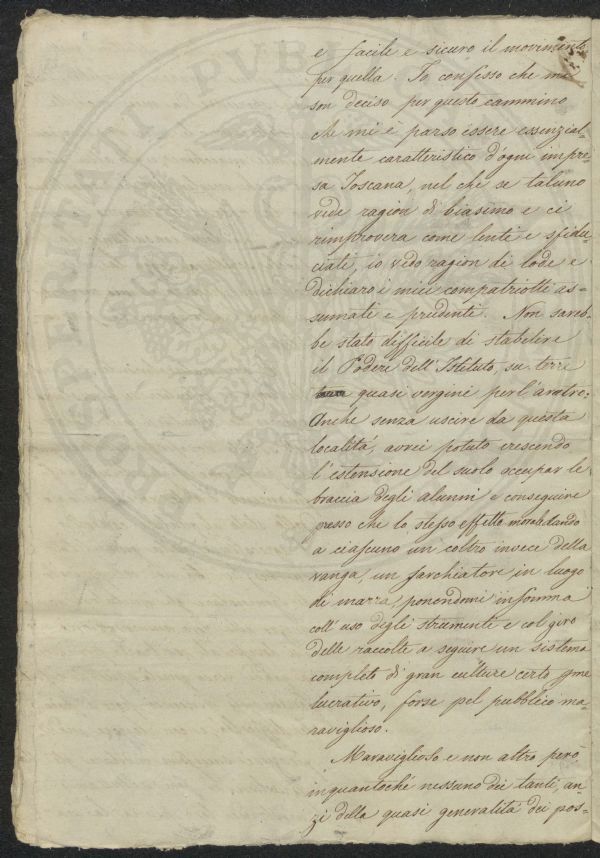 e facile e sicuro il movimento
per quella. Io confesso che mi
son deciso per questo cammino
che mi è parso essere essenzial-
mente caratteristico d'ogni impre-
sa Toscana, nel che se taluno
vide ragion di biasimo e ci
rimprovera come lenti e sfidu-
ciati, io vedo ragion di lode e
dichiaro i miei compatriotti as-
sumati e prudenti. Non sareb-
be stato difficile di stabilire
il Podere dell'Istituto, su terre
quasi vergini per l'aratro;
Anche senza uscire da questa
località, avrei potuto crescendo
l'estensione del suolo occupar le
braccia degli alunni e conseguire
presso che lo stesso effetto morale dando
a ciascuno un coltro invece della
vanga, un sarchiatore in luogo
di marra, ponendomi insomma
coll'uso degli strumenti e col giro
delle raccolte a seguire un sistema
completo di gran culture certo pme
lucrativo, forse pel pubblico ma-
raviglioso.
Maraviglioso e non altro però
inquantoché nessuno dei tanti, an-
zi della quasi generalità dei pos-
PROSPERITATI PUBLICAE